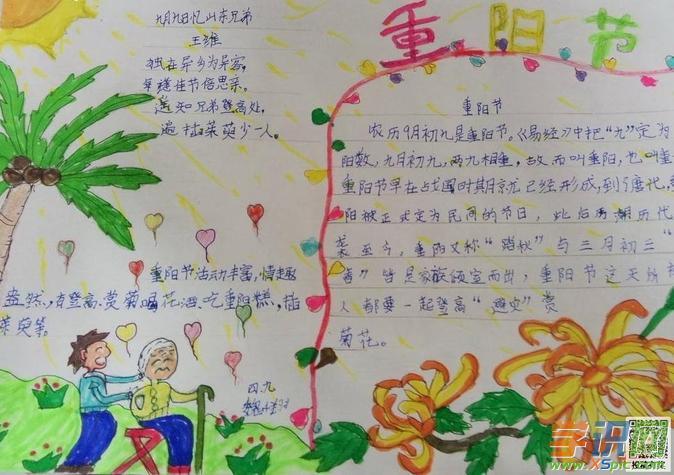 重阳节
九月九日忆山东兄弟
王维
独在异乡为异客,
每逢佳节倍思亲。
遥知兄弟登高处,
遍插茱萸少一人。
重阳节
农历9月初九是重阳节。《易经》中把“九”定为
阳数,九月初九,两九相重,故而叫重阳,也叫重
重阳节早在战国时其期京尤已经形成,到了唐代,重
阳被正式定为民间的节日,此后历朝历代
袭至今,重阳又称“踏秋”与三月初三“
春”皆是家族倾室而出,重阳节这天所有
人都要一起登高“避灾”赏
菊花。
重阳节活动丰富,情趣
盎然,有登高、赏菊、喝花酒、吃重阳糕、插
茱萸等。
四九
学识网